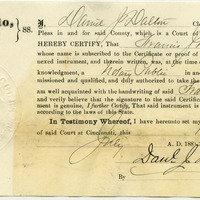 88. I, Daniel J Dalton Cl
Pleas in and for said County, which is a Court of
HEREBY CERTIFY, That Francis
whose name is subscribed to the Certificate or proof of
nexed instrument, and therein written, was, at the time
knowledgment, a Notary Public in
missioned and qualified, and duly authorized to take the
am well acquainted with the handwriting of said Fra
and verily believe that the signature to the said Certific
ment is genuine, I further Certify, That said instrument is
cording to the laws of this State.
In Testimony Whereof, I have hereunto set my
of said Court at Cincinnati, this
July A. D. 188
Danl J